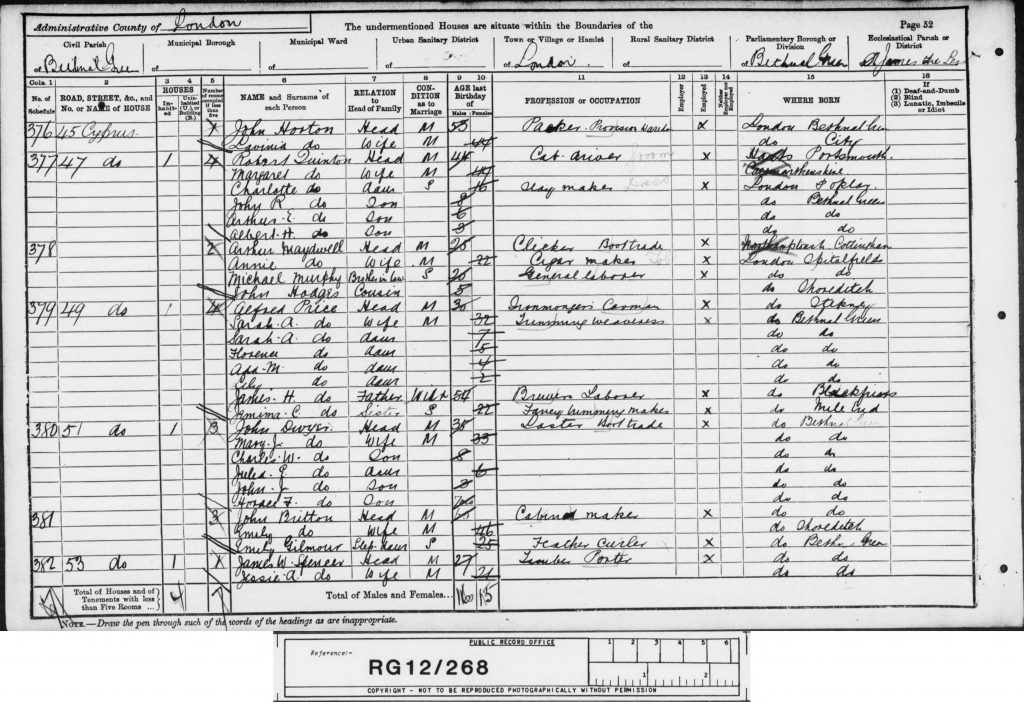 Administrative County of London The undermentioned Houses are situate within the Boundaries of the Page 52
Civil Parish Municipal Borough Municipal Ward Urban Sanitary District Town or Village or Hamlet Rural Sanitary District Parliamentary Borough or Division Ecclesiastical Parish or District
of Bethnal Green of of of of London of of Bethnal Green of St James the
Cols. 1 2 3 4 5 6 7 8 9 10 11 12 13 14 15 16
No. of Schedule ROAD, STREET, &c., and No. or NAME of HOUSE HOUSES Inhabited Uninhabited (U.), or Building (B.) Number of rooms occupied if less than five NAME and Surname of each Person RELATION to Head of Family CONDITION as to Marriage AGE last Birthday of Males Females PROFESSION or OCCUPATION Employer Employed Neither employer nor employed WHERE BORN (1) Deaf-and-Dumb (2) Blind (3) Lunatic, Imbecile or Idiot
376 45 Cyprus John Horton Head M 53 Packer Provision X London Bethnal Green
Lavinia do Wife M 44 do City
377 47 do 1 4 Robert Quinton Head M 44 Cab driver Groom X Hants Portsmouth
Margaret do Wife M 47 Carmarthenshire
Charlotte do daur S 16 maker Dress X London Poplar
John R do Son 8 do Bethnal Green
Arthur E. do Son 6 do do
Albert H. do Son 3 do do
378 2 Arthur Maydwell Head M 25 Clicker Boot trade X Cottingham
Annie do Wife M 22 Cigar maker X London Spitalfields
Michael Murphy Brother in law S 20 General laborer X do do
John Hodges Cousin 5 do Shoreditch
379 49 do 1 4 Alfred Price Head M 30 Ironmongers Carman X do Stepney
Sarah A. do Wife M 32 Trimming weaveress X do Bethnal Green
Sarah A. do daur 7 do do
Florence do daur 5 do do
Ada M. do daur 4 do do
Lily do daur 2 do do
James H. do Father Widr 54 Brewers Laborer X do Blackfriars
Jemima C. do Sister S 22 Fancy trimming maker X do Mile End
380 51 do 1 3 John Dwyer Head M 35 Laster Boot trade X do Bethnal Green
Mary J. do Wife M 33 do do
Charles W. do Son 8 do do
Julia do daur 6 do do
John J. do Son 3 do do
Horace F. do Son do do
381 3 John Britton Head M Cabinet maker X do do
Emily do Wife M 46 do Shoreditch
Emily Gilmour Step-daur S 25 Feather Curler X do Beth. Green
382 53 do 1 James W. Spencer Head M 27 Timber Porter X do do
Jessie A. do Wife M 21 do do
Total of Houses and of Tenements with less than Five Rooms 4 7 Total of Males and Females... 16 15
NOTE.—Draw the pen through such of the words of the headings as are inappropriate.
PUBLIC RECORD OFFICE
Reference:- 1 2 3 4 5 6
RG12/268 1 2
COPYRIGHT - NOT TO BE REPRODUCED PHOTOGRAPHICALLY WITHOUT PERMISSION